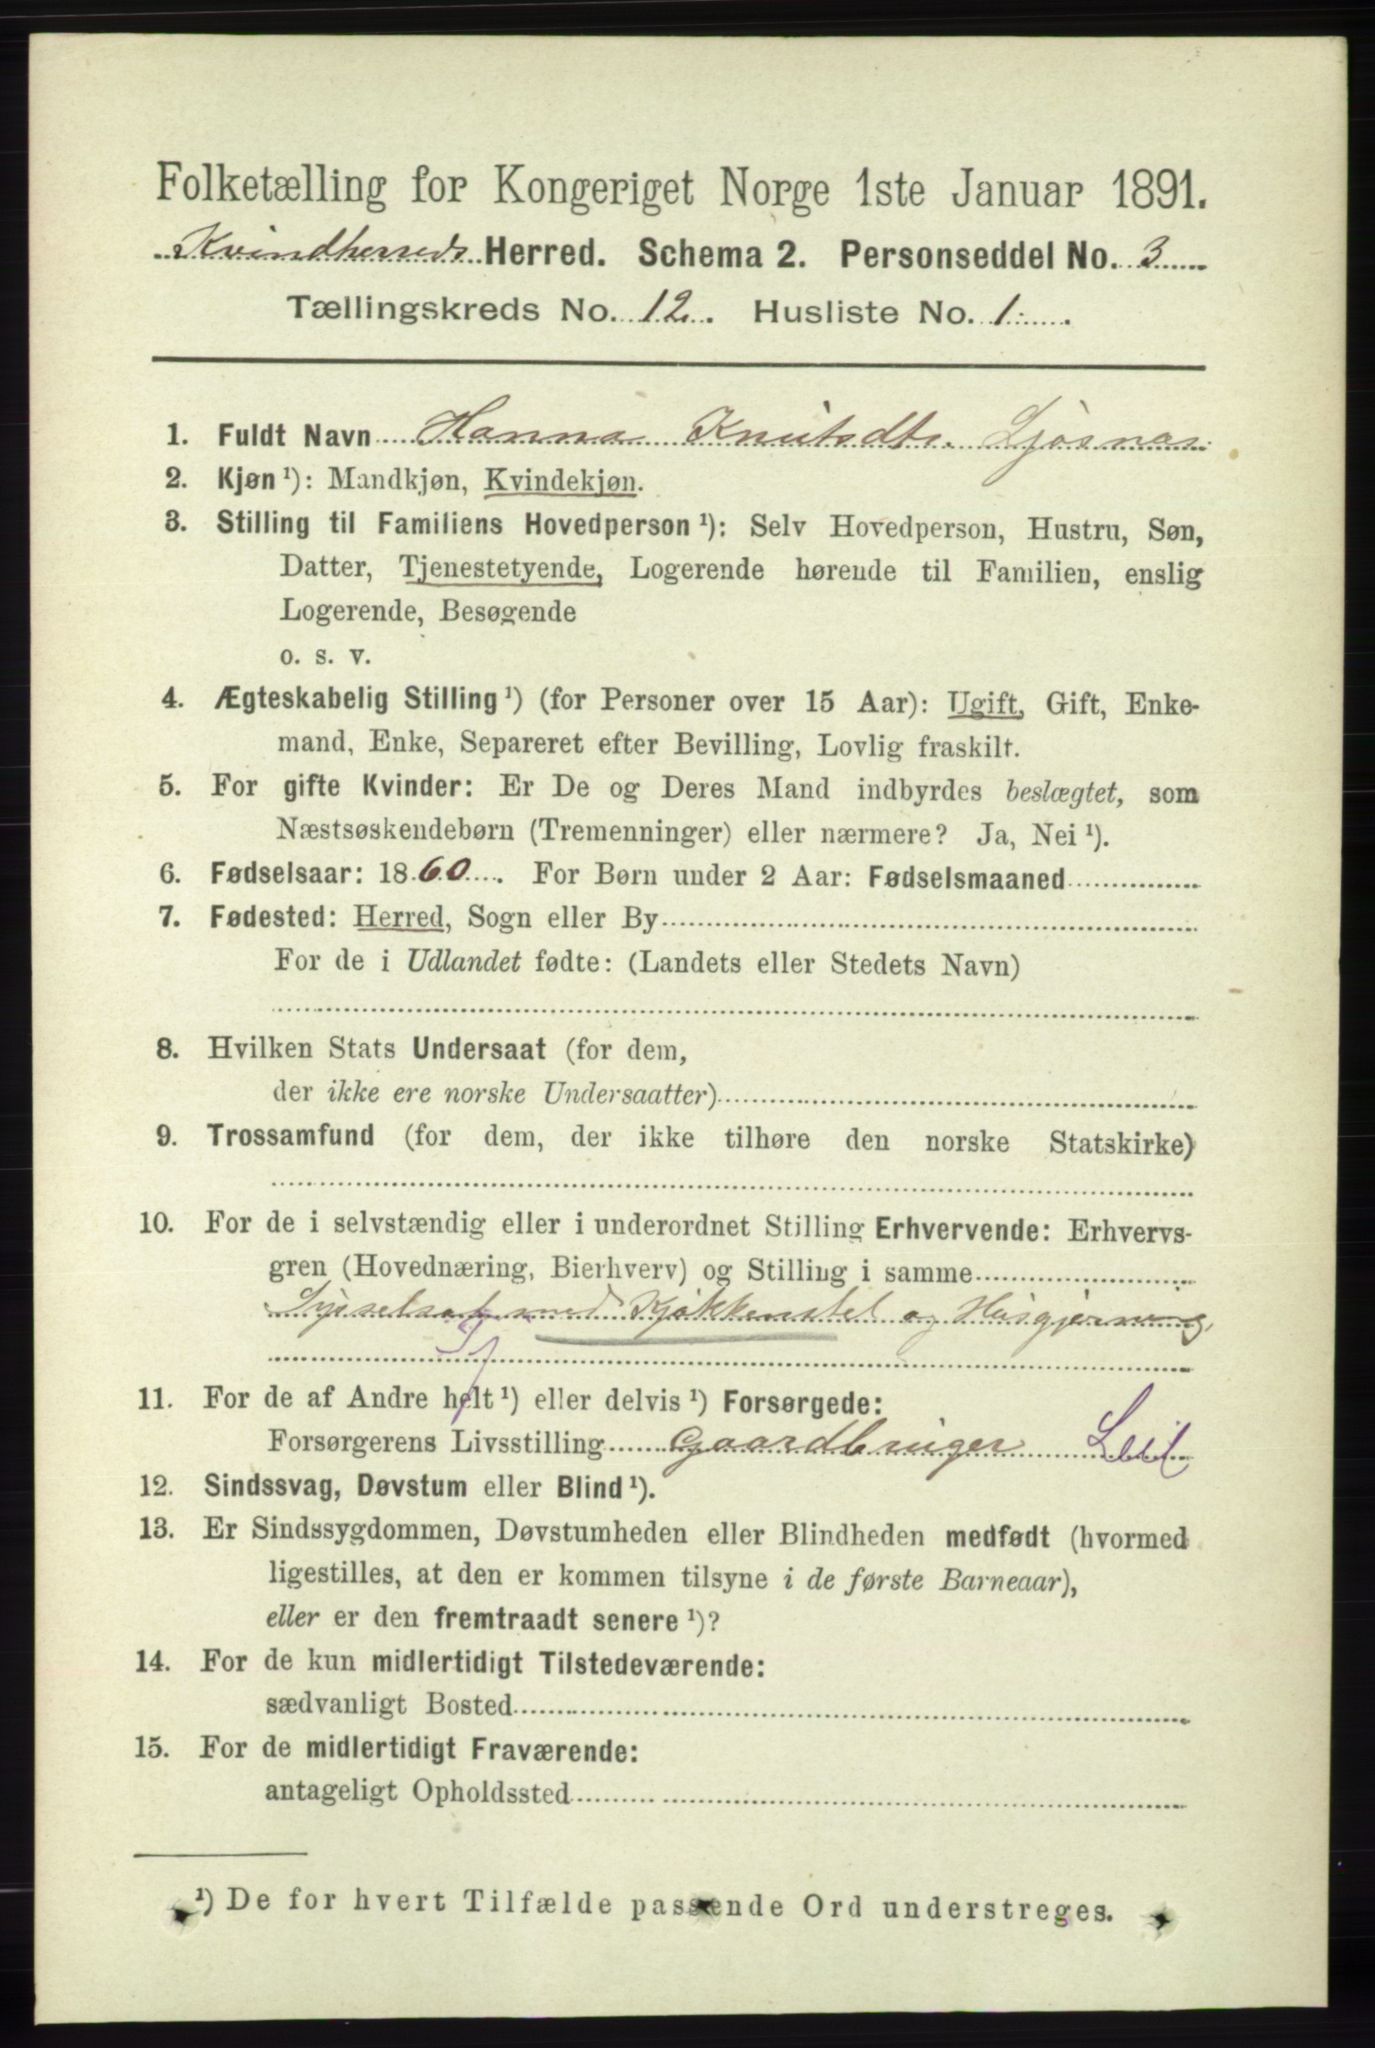 Folketælling for Kongeriget Norge 1ste Januar 1891.
Kvindherreds Herred. Schema 2. Personseddel No. 3
Tællingskreds No. 12. Husliste No. 1.
1. Fuldt Navn Hanna Knutsdtr. Ljosnas
2. Kjøn ¹): Mandkjøn, Kvindekjøn.
3. Stilling til Familiens Hovedperson ¹): Selv Hovedperson, Hustru, Søn,
Datter, Tjenestetyende, Logerende hørende til Familien, enslig
Logerende, Besøgende
o. s. v.
4. Ægteskabelig Stilling ¹) (for Personer over 15 Aar): Ugift, Gift, Enke-
mand, Enke, Separeret efter Bevilling, Lovlig fraskilt.
5. For gifte Kvinder: Er De og Deres Mand indbyrdes beslægtet, som
Næstsøskendebørn (Tremenninger) eller nærmere? Ja, Nei ¹).
6. Fødselsaar: 1860. For Børn under 2 Aar: Fødselsmaaned
7. Fødested: Herred, Sogn eller By
For de i Udlandet fødte: (Landets eller Stedets Navn)
8. Hvilken Stats Undersaat (for dem,
der ikke ere norske Undersaatter)
9. Trossamfund (for dem, der ikke tilhøre den norske Statskirke)
10. For de i selvstændig eller i underordnet Stilling Erhvervende: Erhvervs-
gren (Hovednæring, Bierhverv) og Stilling i samme
Sysselsat med Kjøkkenstel og Husgjerning,
11. For de af Andre helt ¹) eller delvis ¹) Forsørgede:
Forsørgerens Livsstilling Gaardbruger
12. Sindssvag, Døvstum eller Blind ¹).
13. Er Sindssygdommen, Døvstumheden eller Blindheden medfødt (hvormed
ligestilles, at den er kommen tilsyne i de første Barneaar),
eller er den fremtraadt senere ¹)?
14. For de kun midlertidigt Tilstedeværende:
sædvanligt Bosted
15. For de midlertidigt Fraværende:
antageligt Opholdssted
¹) De for hvert Tilfælde passende Ord understreges.